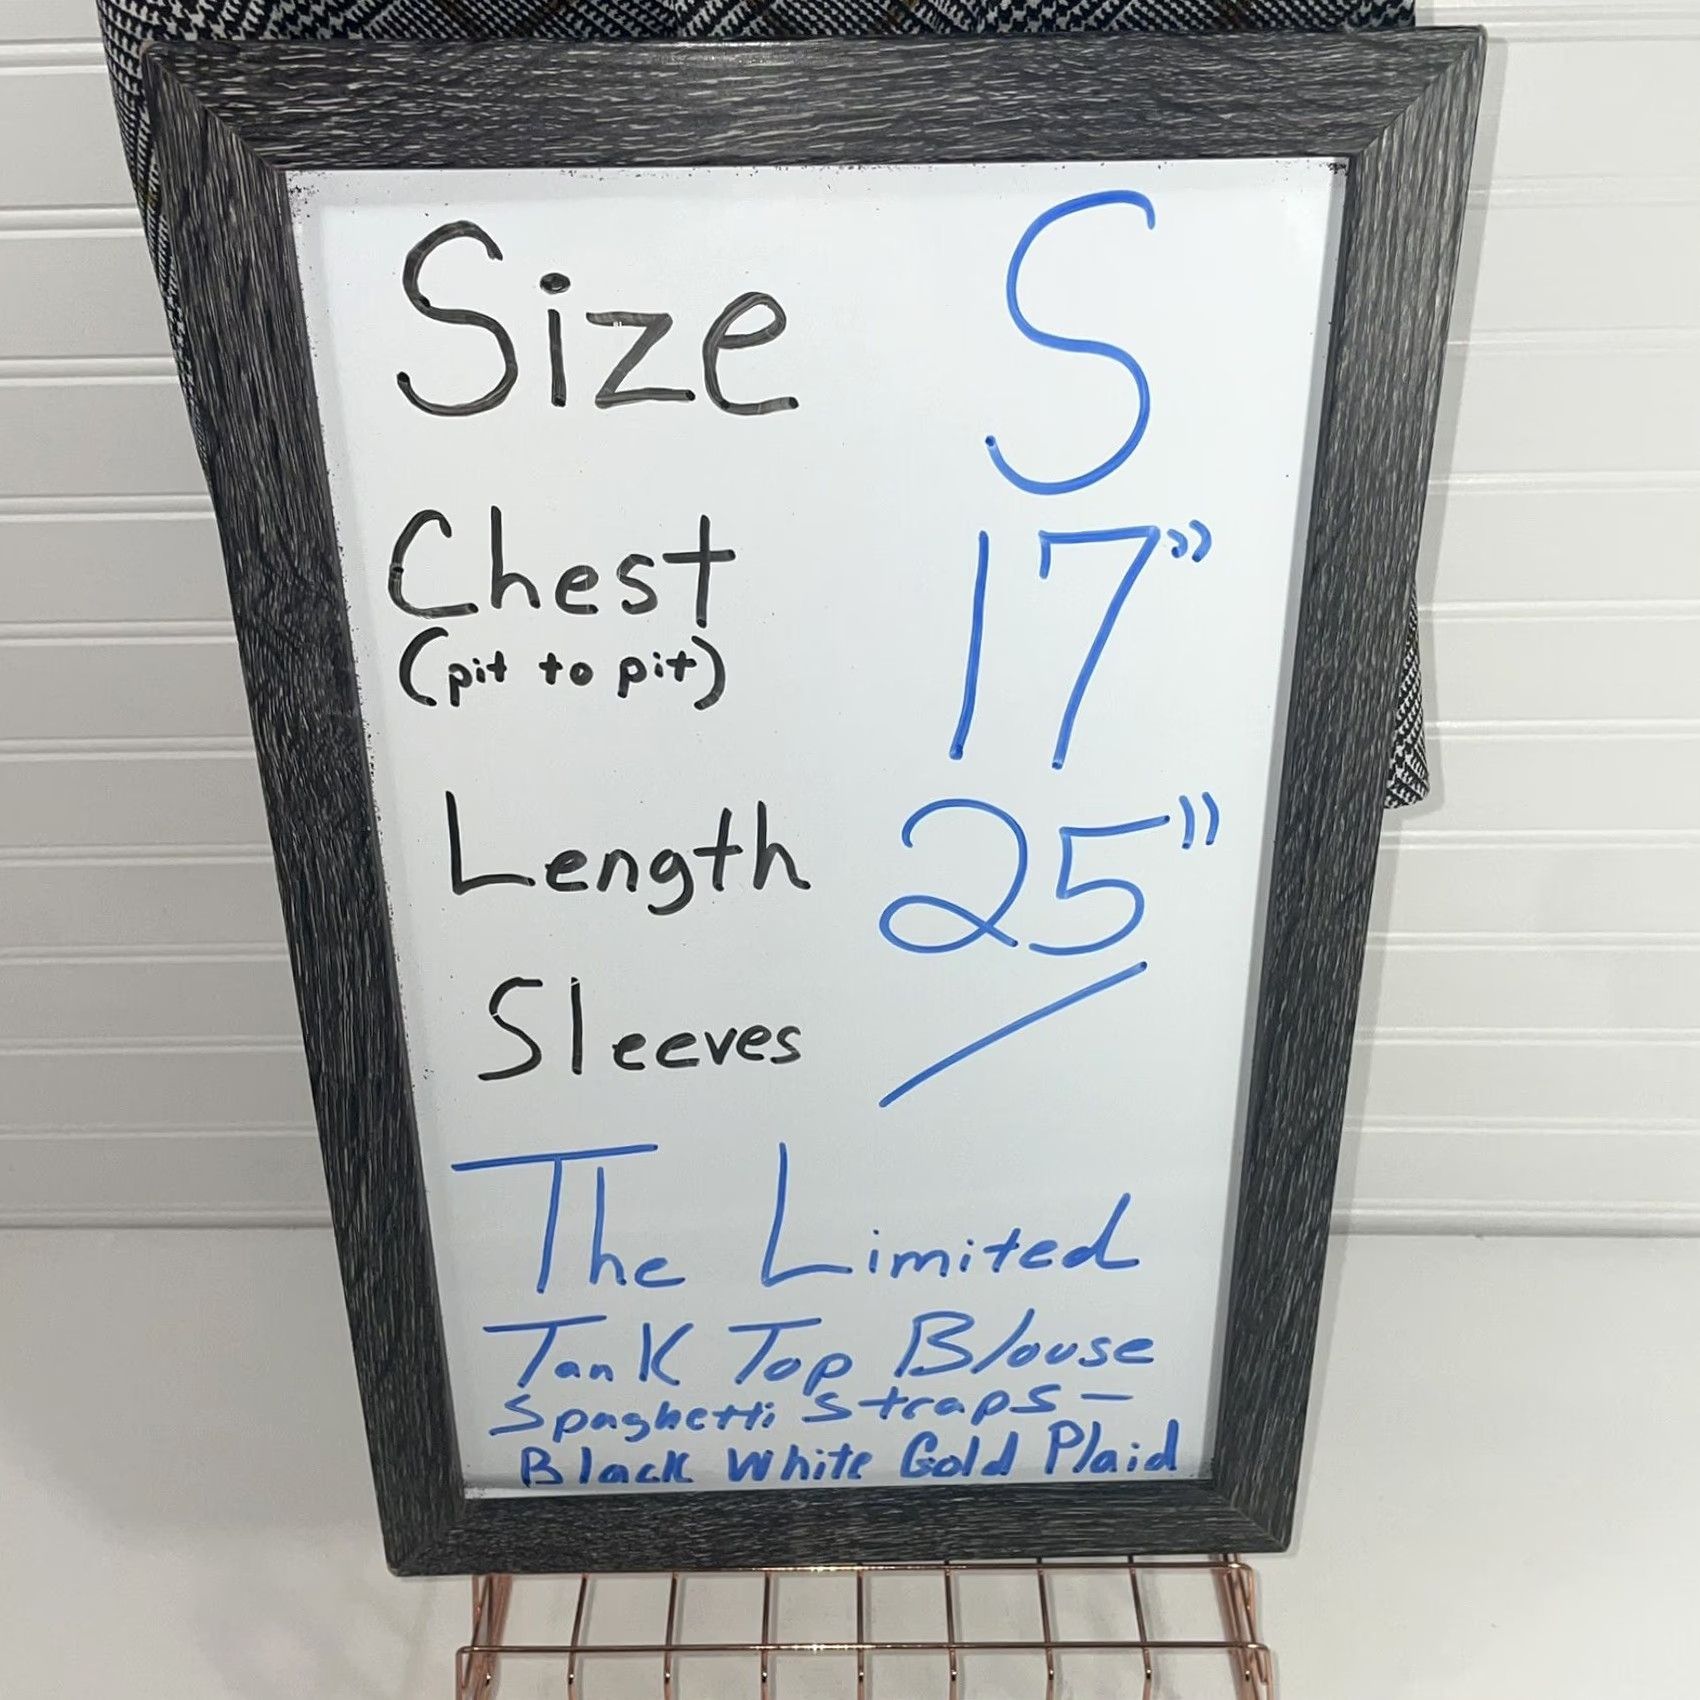 Size S
Chest 17"
(pit to pit)
Length 25"
Sleeves /
The Limited
Tank Top Blouse
Spaghetti Straps -
Black White Gold Plaid